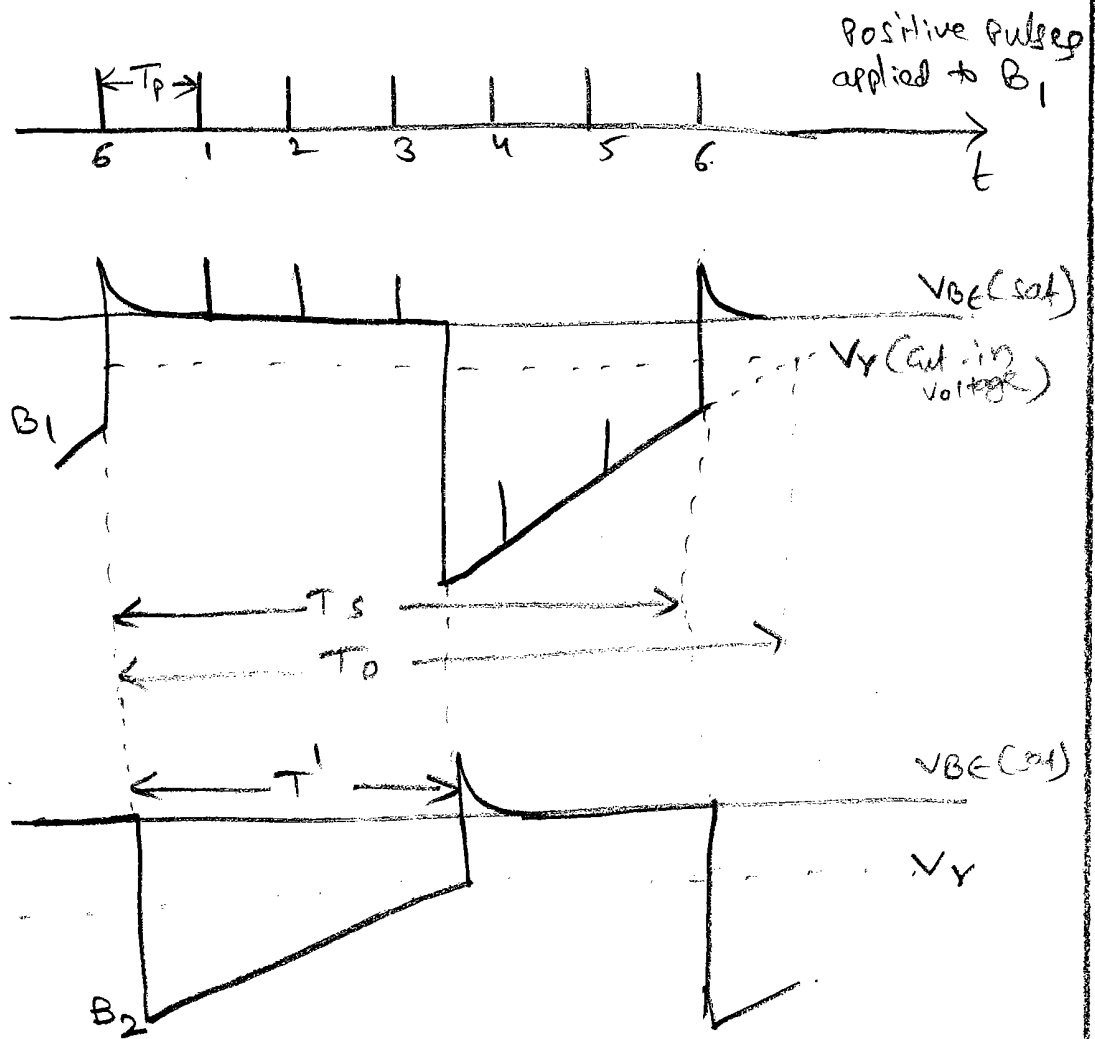 Positive pulses
applied to B1
Tp
6 1 2 3 4 5 6.
t
VBE(sat)
Vγ (cut-in
voltage)
B1
Ts
To
T'
VBE(sat)
Vγ
B2